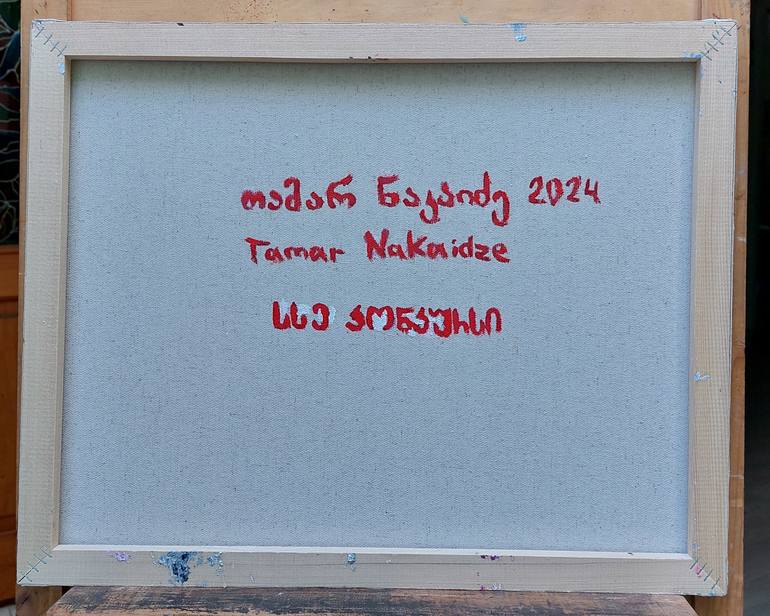 თამარ ნაკაიძე 2024
Tamar Nakaidze
სსე კონკურსი